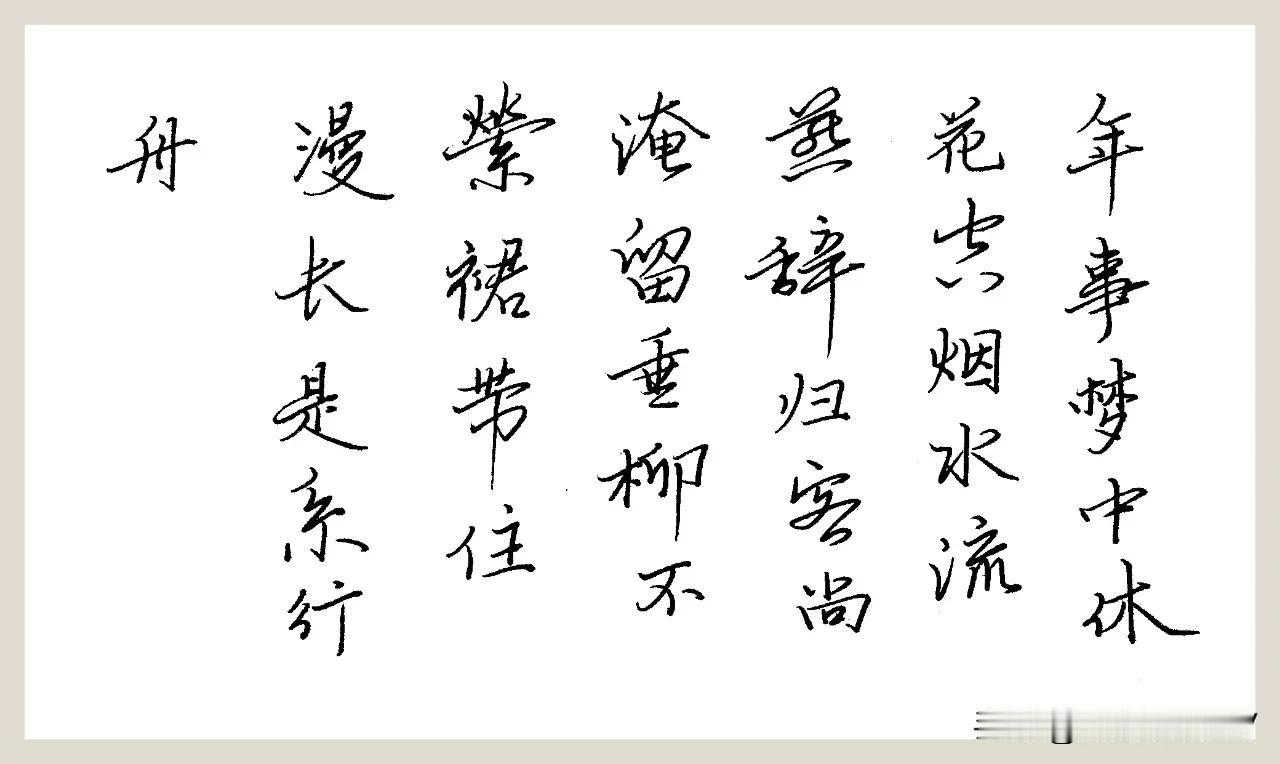 年事梦中休
花空烟水流
燕辞归客尚
淹留垂柳不
縈裙带住
漫长是系行
舟